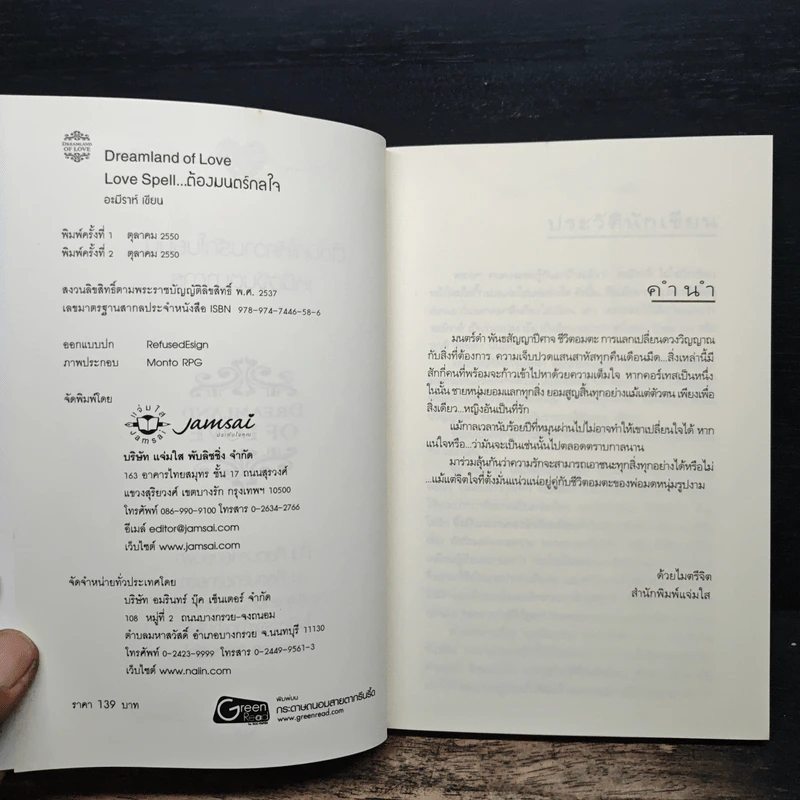 DREAMLAND
OF LOVE
Dreamland of Love
Love Spell...ต้องมนตร์กลใจ
อะมีราห์ เขียน
พิมพ์ครั้งที่ 1 ตุลาคม 2550
พิมพ์ครั้งที่ 2 ตุลาคม 2550
สงวนลิขสิทธิ์ตามพระราชบัญญัติลิขสิทธิ์ พ.ศ. 2537
เลขมาตรฐานสากลประจำหนังสือ ISBN 978-974-7446-58-6
ออกแบบปก RefusedEsign
ภาพประกอบ Monto RPG
จัดพิมพ์โดย
แจ่มใส
Jamsai
Jamsai
บริษัท แจ่มใส พับลิชชิ่ง จำกัด
163 อาคารไทยสมุทร ชั้น 17 ถนนสุรวงศ์
แขวงสุริยวงศ์ เขตบางรัก กรุงเทพฯ 10500
โทรศัพท์ 086-990-9100 โทรสาร 0-2634-2766
อีเมล์ editor@jamsai.com
เว็บไซต์ www.jamsai.com
จัดจำหน่ายทั่วประเทศโดย
บริษัท อมรินทร์ บุ๊ค เซ็นเตอร์ จำกัด
108 หมู่ที่ 2 ถนนบางกรวย-จงถนอม
ตำบลมหาสวัสดิ์ อำเภอบางกรวย จ.นนทบุรี 11130
โทรศัพท์ 0-2423-9999 โทรสาร 0-2449-9561-3
เว็บไซต์ www.naiin.com
ราคา 139 บาท
Green
Read
พิมพ์บน
กระดาษถนอมสายตากรีนรี้ด
www.greenread.com
คำนำ
มนตร์ดำ พันธสัญญาปีศาจ ชีวิตอมตะ การแลกเปลี่ยนดวงวิญญาณ
กับสิ่งที่ต้องการ ความเจ็บปวดแสนสาหัสทุกคืนเดือนมืด...สิ่งเหล่านี้มี
สักกี่คนที่พร้อมจะก้าวเข้าไปหาด้วยความเต็มใจ หากคอร์เทสเป็นหนึ่ง
ในนั้น ชายหนุ่มยอมแลกทุกสิ่ง ยอมสูญสิ้นทุกอย่างแม้แต่ตัวตน เพียงเพื่อ
สิ่งเดียว...หญิงอันเป็นที่รัก
แม้กาลเวลานับร้อยปีที่หมุนผ่านไปไม่อาจทำให้เขาเปลี่ยนใจได้ หาก
แน่ใจหรือ...ว่ามันจะเป็นเช่นนั้นไปตลอดตราบกาลนาน
มาร่วมลุ้นกันว่าความรักจะสามารถเอาชนะทุกสิ่งทุกอย่างได้หรือไม่
...แม้แต่จิตใจที่ตั้งมั่นแน่วแน่อยู่คู่กับชีวิตอมตะของพ่อมดหนุ่มรูปงาม
ด้วยไมตรีจิต
สำนักพิมพ์แจ่มใส